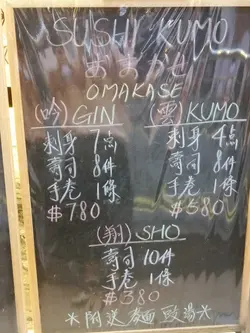 SUSHI KUMO
おまかせ
OMAKASE
(吟) GIN
刺身 7点
寿司 8件
手卷 1條
$780
(雲) KUMO
刺身 4点
寿司 8件
手卷 1條
$580
(翔) SHO
寿司 10件
手卷 1條
$380
*附送麵豉湯*